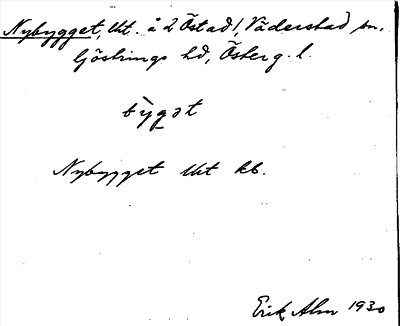 Nybygget, lht. å 2 Östad, Väderstad sn,
Göstrings hd, Österg. l.
bỳgət
Nybygget lht kb.
Erik Alm 1930